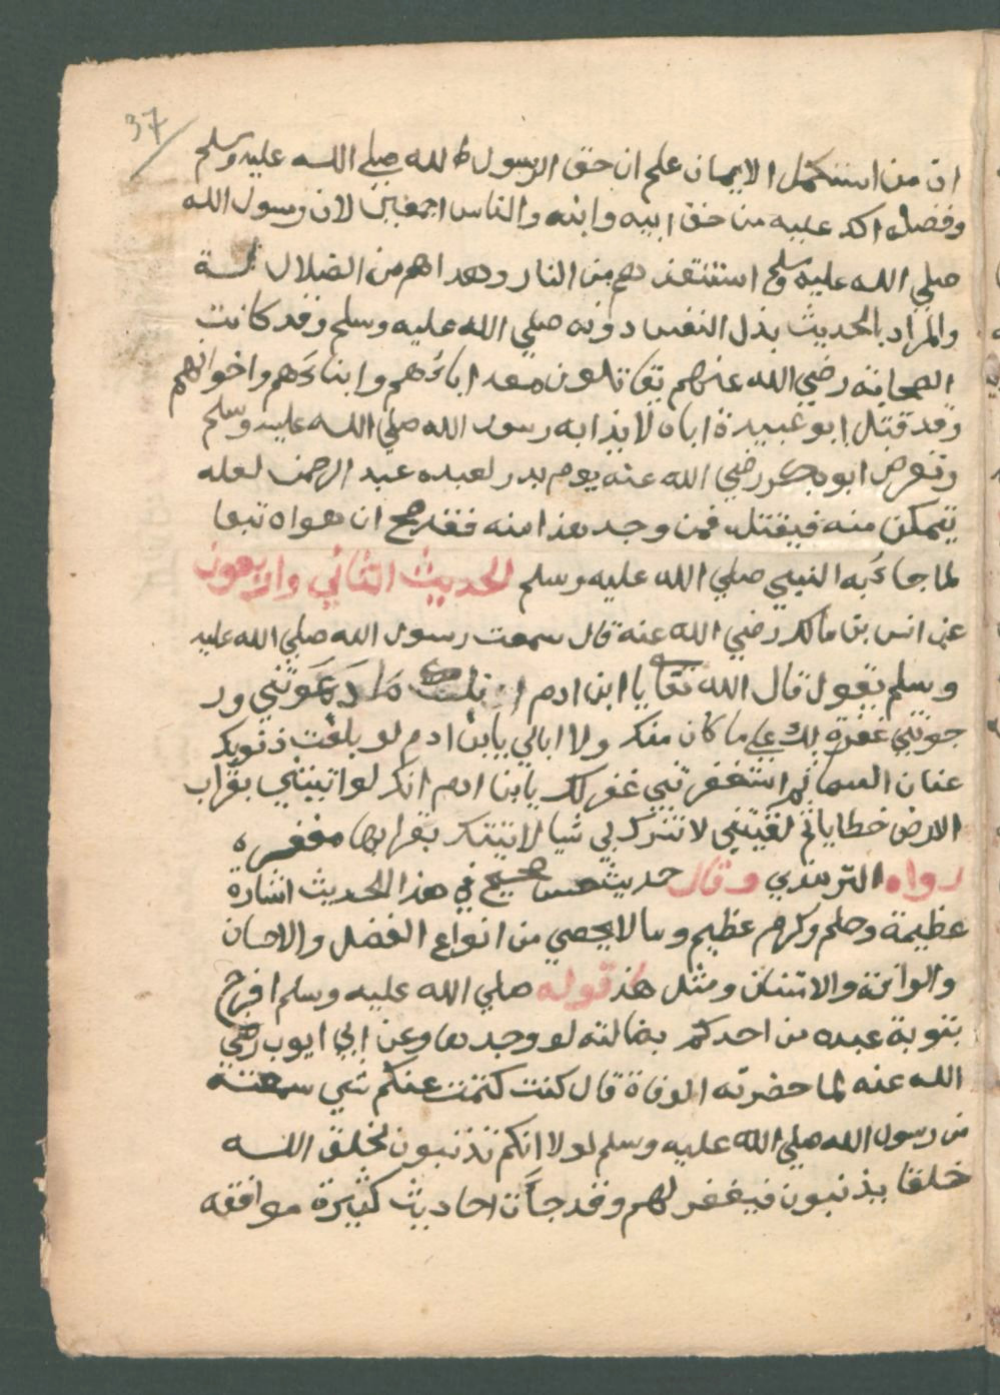 37
ان من استكمل الايمان علم ان حق الرسول لله صلي الله عليه وسلم
وفضله اكد عليه من حق ابيه وابنه والناس اجمعين لان رسول الله
صلي الله عليه وسلم استنقذهم من النار وهداهم من الضلالـة
والمراد بالحديث بذل النفس دونه صلي الله عليه وسلم وقد كانت
الصحابة رضي الله عنهم يقاتلون معه اباءهم وابناءهم واخوانهم
وقد قتل ابو عبيدة اباه لايذايه رسول الله صلي الله عليه وسلم
وتعرض ابو بكر رضي الله عنه يوم بدر لعبده عبد الرحمن لعله
يتمكن منه فيقتله فمن وجد هذا منه فقد صح ان هواه تبعا
لما جاء به النبي صلي الله عليه وسلم الحديث الثاني واربعون
عن انس بن مالك رضي الله عنه قال سمعت رسول الله صلي الله عليه
وسلم يقول قال الله تعالي يا ابن ادم انك ما دعوتني ور
جوتني غفرة لك علي ما كان منك ولا ابالي يابن ادم لو بلغت ذنوبك
عنان السما ثم استغفرتني غفر لك يابن ادم انك لو اتيتني بقراب
الارض خطايا ثم لقيتني لا تشرك بي شيا لاتيتك بقرابها مغفره
رواه الترمذي وقال حديث حسن صحيح في هذا الحديث اشارة
عظيمة وحلم وكرم عظيم وما لا يحصي من انواع الفضل والاحسان
والرافة والامتنان ومثل هذا قوله صلي الله عليه وسلم افرح
بتوبة عبده من احدكم بضالته لو وجدها وعن ابي ايوب رضي
الله عنه لما حضرته الوفاة قال كنت كتمت عنكم شي سمعته
من رسول الله صلي الله عليه وسلم لولا انكم تذنبون لخلق اللـه
خلقا يذنبون فيغفر لهم وقد جأت احاديث كثيرة موافقه